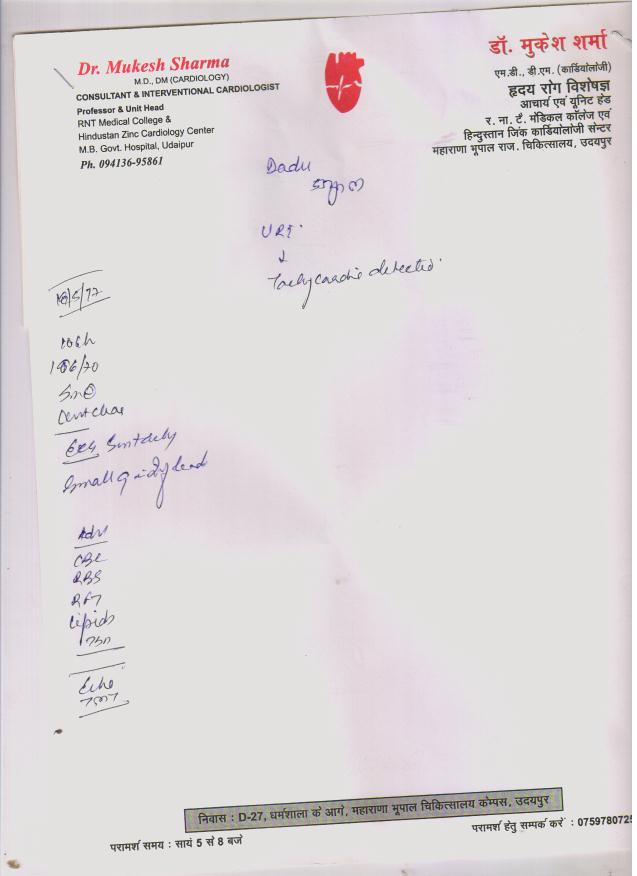 Dr. Mukesh Sharma
M.D., DM (CARDIOLOGY)
CONSULTANT & INTERVENTIONAL CARDIOLOGIST
Professor & Unit Head
RNT Medical College &
Hindustan Zinc Cardiology Center
M.B. Govt. Hospital, Udaipur
Ph. 094136-95861
डॉ. मुकेश शर्मा
एम.डी., डी.एम. (कार्डियोलॉजी)
हृदय रोग विशेषज्ञ
आचार्य एवं यूनिट हेड
र. ना. टैं. मेडिकल कॉलेज एवं
हिन्दुस्तान जिंक कार्डियोलॉजी सेन्टर
महाराणा भूपाल राज. चिकित्सालय, उदयपुर
Dadu
URI
↓
Tachycardia detected
Small q
Adv
CBC
RBS
RFT
Lipids
Echo
निवास : D-27, धर्मशाला के आगे, महाराणा भूपाल चिकित्सालय केम्पस, उदयपुर
परामर्श समय : सायं 5 से 8 बजे
परामर्श हेतु सम्पर्क करें : 0759780725